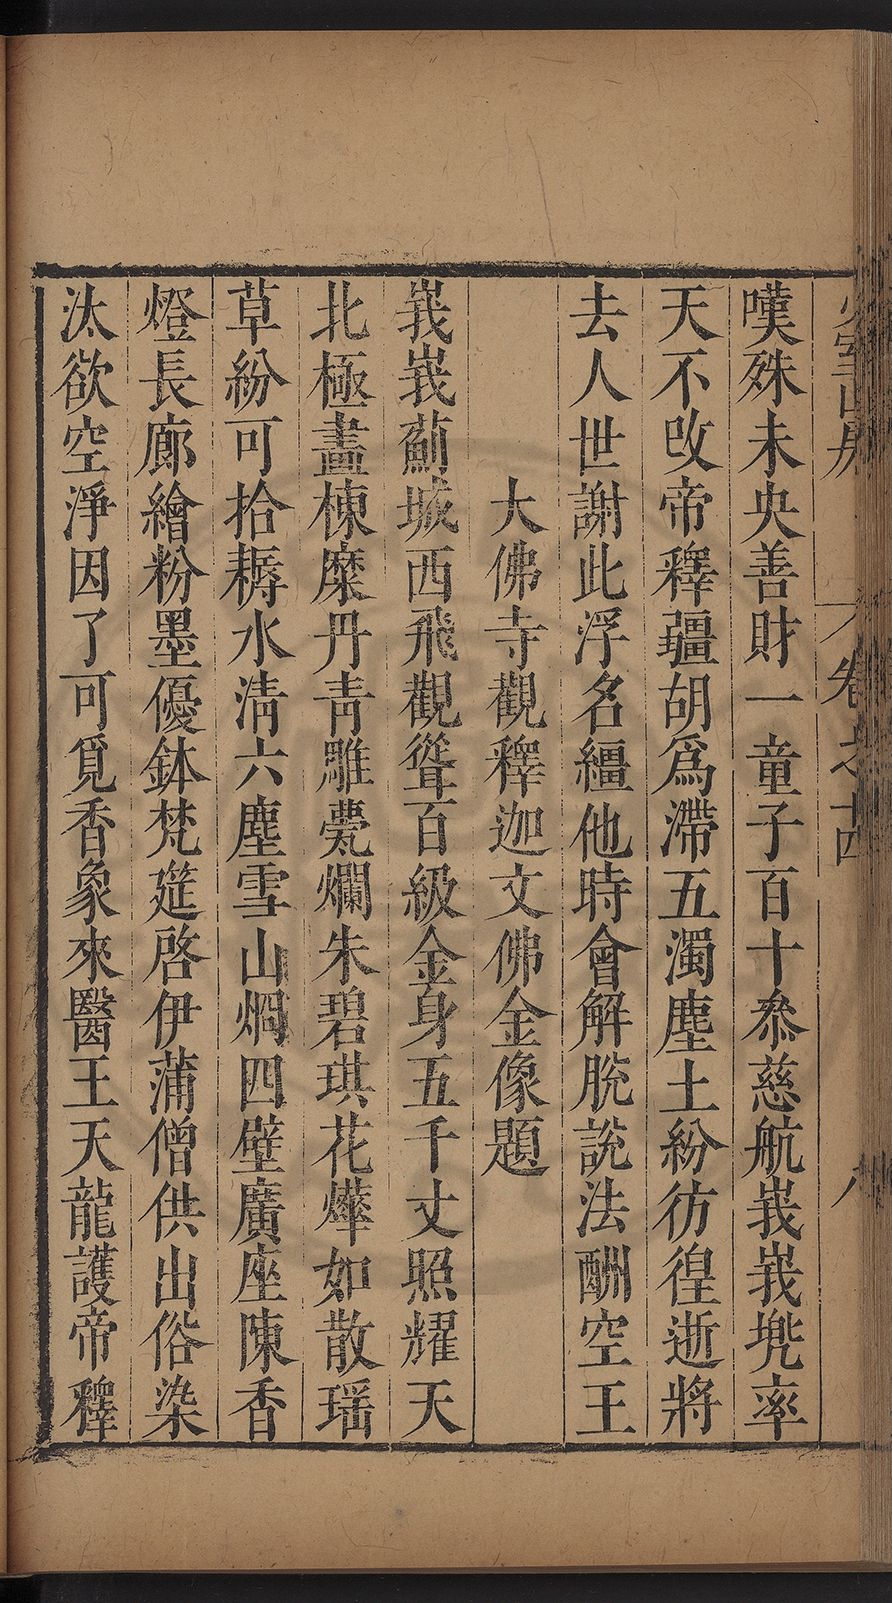 少室山房 卷之十四 八
嘆殊未央善財一童子百十叅慈航峩峩兠率
天不攺帝釋疆胡爲滯五濁塵土紛彷徨逝將
去人世謝此浮名繮他時會解脫說法酬空王
大佛寺觀釋迦文佛金像題
峩峩薊城西飛觀聳百級金身五千丈照耀天
北極畫棟糜丹青雕甍爛朱碧琪花燁如散瑶
草紛可拾耨水淸六塵雪山烱四壁廣座陳香
燈長廊繪粉墨優鉢梵筵啓伊蒲僧供出俗染
汰欲空淨因了可覓香象來醫王天龍護帝釋